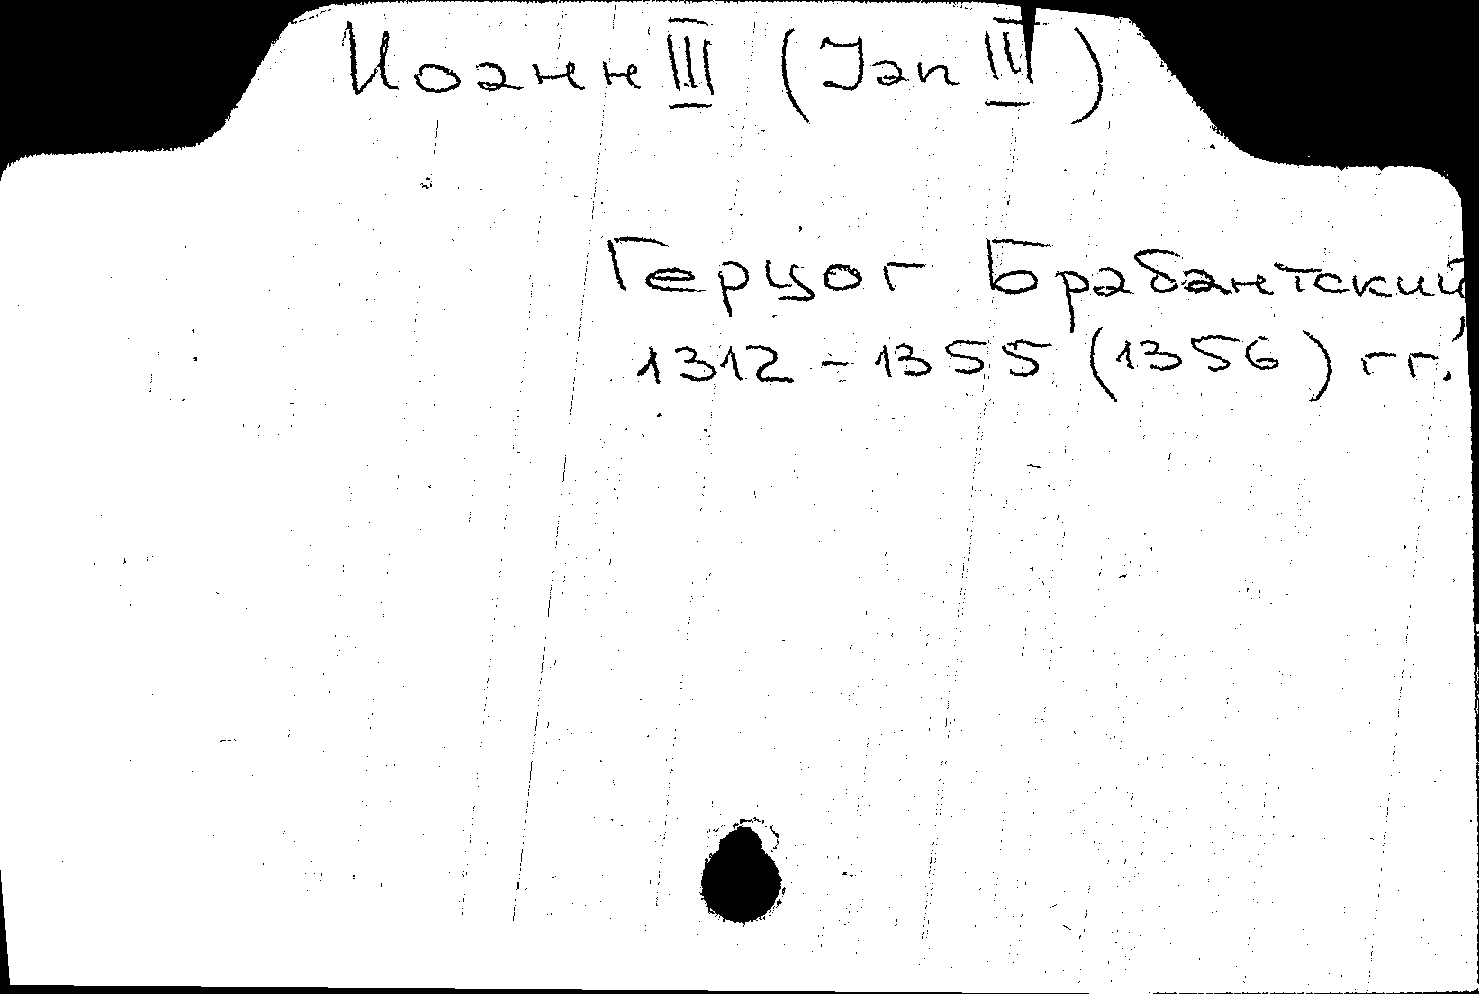 Иоанн III (Jan III)
Герцог Брабантский,
1312 - 1355 (1356) гг.